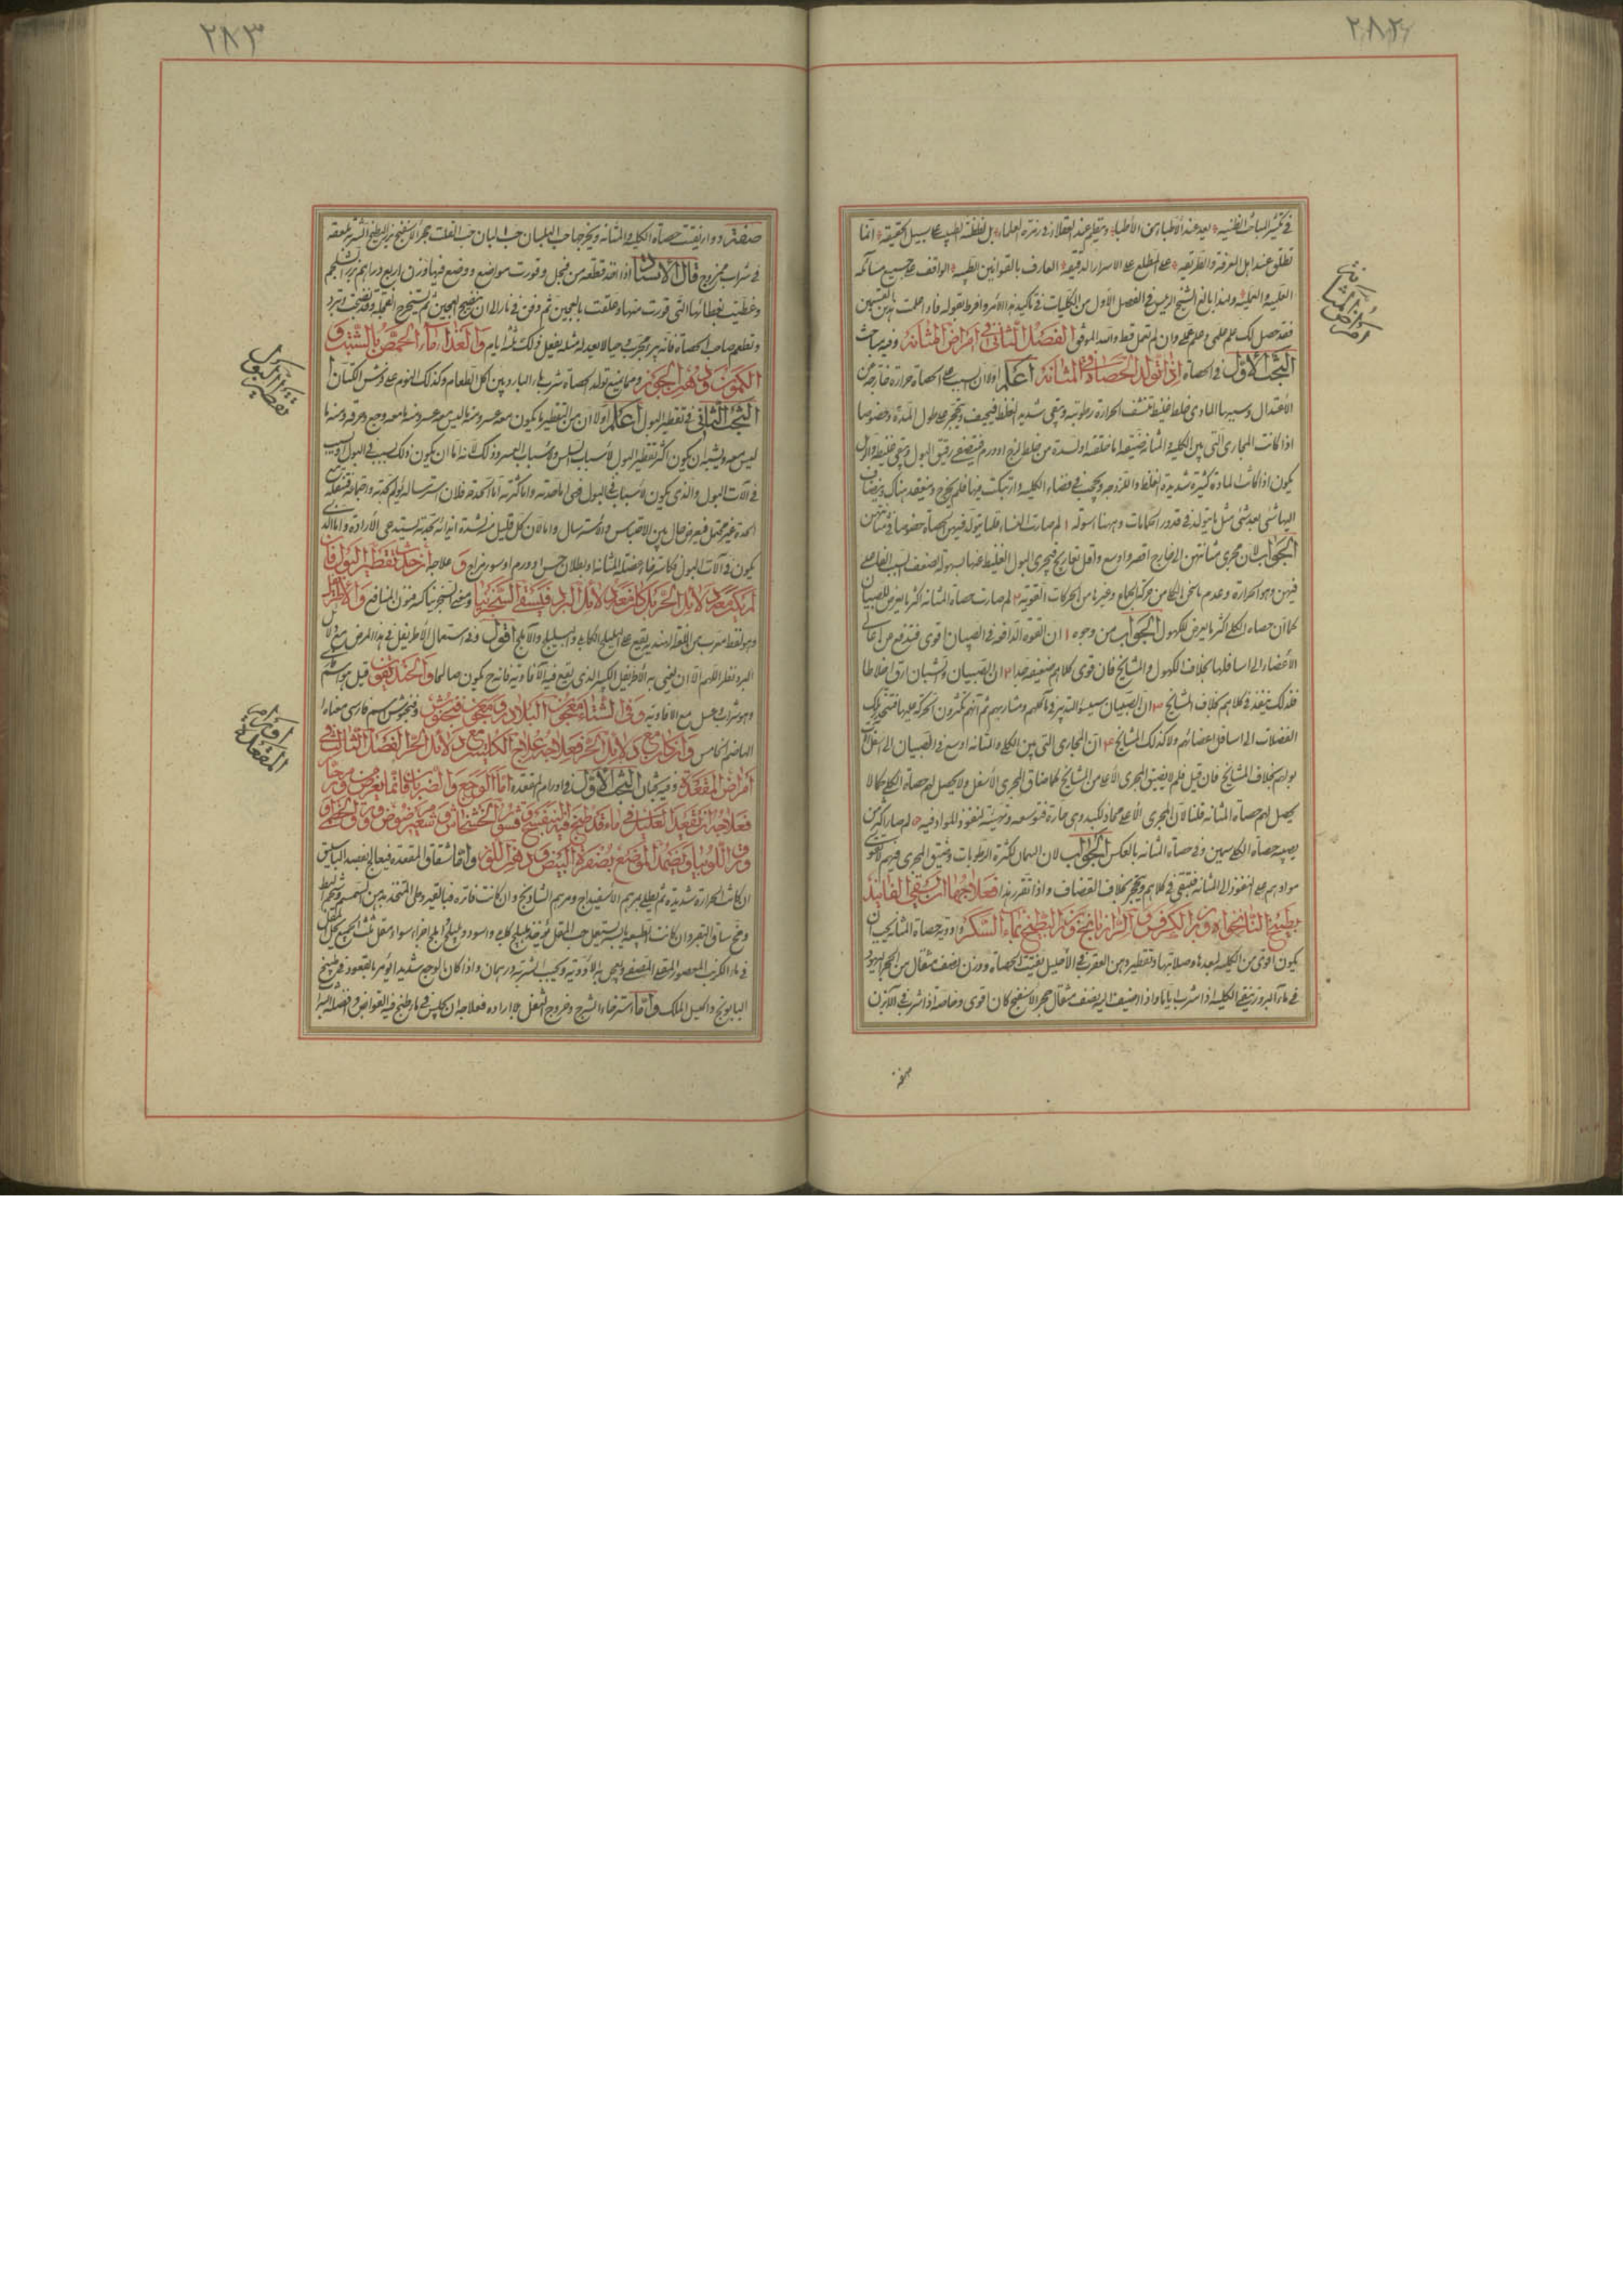 ٢٨٢
في تمييز المباحث الطبية بعيد عند الأطباء عن الأطباء ويتعلم عند العقلاء في زمرة العلماء بل لفظة الطبيب على سبيل الحقيقة انما
تطلق عند اهل المعرفة والطريقة على المطلع على الاسرار الدقيقة العارف بالقوانين الطبية الواقف على جميع مسائله
العلمية والعملية ولهذا بالغ الشيخ الرئيس في الفصل الأول من الكليات في تأكيد هذا الأمر بقوله فاذا علمت هذين القسمين
فقد حصل لك علم علمي وعلم عملي وان لم تعمل قط والله الموفق الفصل الثاني في امراض المثانة وفيه مباحث
البحث الأول في الحصاة اذا تولد الحصاة في المثانة اعلم اولا ان سبب الحصاة حرارة خارجة عن
الاعتدال وسببها المادي خلط غليظ تنشف الحرارة رطوبته ويبقى شديد الغلظ فيجف ويتحجر على طول المدة وخصوصا
اذا كانت المجاري التي بين الكلية والمثانة ضيقة اما خلقة او لسدة من خلط لزج او ورم فيتصفى رقيق البول ويبقى غليظه
يكون اذا كانت المادة كثيرة شديدة الغلظ واللزوجة في فضاء الكلية وارتبكت فيها فلم يخرج وينعقد هناك وينضاف
اليها شئ بعد شئ مثل ما يتولد في قدور الحمامات وههنا اسولة ١ لم صارت النساء قلما يتولد فيهن الحصاة خصوصا في مثانتهن
الجواب لان مجرى مثانتهن الى خارج اقصر واوسع واقل تعاريج فيجرى البول الغليظ عنها بسهولة لضعف السبب الفاعل
فيهن وهو الحرارة وعدم من حركة الجماع وغيرها من الحركات القوية ٢ لم صارت حصاة المثانة اكثر ما يعرض للصبيان
كما ان حصاة الكلى اكثر ما يعرض للكهول الجواب من وجوه ١ ان القوة الدافعة في الصبيان اقوى فتدفع عن اعالى
الأعضاء الى اسافلها بخلاف الكهول والمشايخ فان قوى كلاهم ضعيفة جدا ٢ ان الصبيان والشبان ارق اخلاطا
فلذلك ينفذ في كلاهم بخلاف المشايخ ٣ ان الصبيان سيئوا التدبير في مأكلهم ومشاربهم ثم انهم يكثرون الحركة عليها فتنجذب
الفضلات الى اسافل اعضائهم ولا كذلك المشايخ ٤ ان المجاري التي بين الكلى والمثانة اوسع في الصبيان
بخلاف المشايخ فان قيل فلم لا يضيق المجرى الأعلى من المشايخ كما ضاق المجرى الأسفل ولا يحصل لهم حصاة الكلى كما لا
يحصل لهم حصاة المثانة قلنا لان المجرى الأعلى محاذ للكبد وهى حارة فتوسعه وتهيئه لنفوذ المواد فيه ٥ لم صار اكثر من
يصيبه حصاة الكلى سمين وفي حصاة المثانة بالعكس الجواب لان السمان لكثرة الرطوبات وضيق المجرى فيهم
موادهم على النفوذ الى المثانة فتبقى في كلاهم ويتحجر بخلاف القضاف واذا تقرر هذا فعلاجهما ان يسقى الفانيذ
بطبيخ النانخواه وبزر الكرفس والرازيانج وبزر البطيخ بماء السكر وادوية حصاة المثانة يجب ان
يكون اقوى من الكلية لبعدها وصلابتها وتقطير دهن العقرب في الاحليل يفتت الحصاة ووزن نصف مثقال من الحجر اليهود
في ماء البزور ينقى الكلية اذا شرب اياما واذا اضيف اليه نصف مثقال حجر الاسفنج كان اقوى وخاصة اذا شرب في الآبزن
امراض المثانة
صفة
٢٨٣
صفة دواء يفتت حصاة الكلية والمثانة ويخرجها حب البلسان حب البان حب القلت حجر الاسفنج بزر البطيخ الشربة ملعقة
في شراب ممزوج قال الانسان اذا اخذ قطعة من فجل وقورت مواضع ووضع فيها وزن اربع دراهم بزر الشلجم
وغطيت بغطائها التي قورت منها وطليت بالعجين ثم دفن في نار الى ان ينضج العجين ثم يستخرج الفجلة وقد نضجت وتبرد
وتطعم صاحب الحصاة فانه يبرأ مجرب يفعل ذلك ثلثة ايام والغذاء ماء الحمص بالشبت و
الكمون ودهن الجوز ومما يمنع تولد الحصاة شرب ماء البارد بين اكل الطعام وكذلك النوم على فرش الكتان
البحث الثاني في تقطير البول اعلم اولا ان من التقطير ما يكون معه عسر ومنه ما ليس معه عسر ومنه ما معه وجع وحرقة ومنه ما
ليس معه ويشبه ان يكون اكثر تقطير البول لأسباب السلس وأسباب العسر وذلك لانه اما ان يكون ذلك لسبب في البول او لسبب
في آلات البول والذي يكون لأسباب في البول فهي اما حدته واما كثرته اما الحدة فلان
الحدة غير محتمل فيعرض حال بين الاحتباس والاسترسال واما لان كل قليل منه لشدة ايذائه بحدته يستدعى الارادة واما الذي
يكون في آلات البول كاسترخاء عضلة المثانة او بطلان حس او ورم او سوء مزاج وعلاجه اذا حدث تقطير البول فان
لم يكن معه دلائل الحر بل كان معه دلائل البرد فيسقى السنجرنيا ومعنى السنجرنيا كمنون المنافع والاطريفل
وهو لفظ معرب من اللغة الهندية يقع على الهليلج الكابلى والبليلج والأملج اقول وفي استعمال الأطريفل في هذا المرض مع دلائل
البرد نظر اللهم الا ان يعنى به الأطريفل الكبير الذي يقع فيه الأفاويه فانه ح يكون صالحا والخنديقون قيل هو اسم
وهو شراب وعسل مع الافاويه وفي الشتاء معجون البلادر ومعجون فنجنوش وفنجنوش اسم فارسى معناه
الهاضم الخامس وان كان مع دلائل الحر فعلاجه علاج الكليتين مع دلائل الحر الفصل الثالث في
امراض المقعدة وفيه بحثان البحث الأول في اورام المقعدة اما الوجع والضربان فانما يعرض من ورم حار
فعلاجه ان يقعد العليل في ماء قد طبخ فيه البنفسج وقشور الخشخاش وشعير مرضوض وورق الخطمى و
ورق اللوبيا ويضمد الموضع بصفرة البيض ودهن اللوز واما شقاق المقعدة فيعالج بفصد الباسليق
ان كانت الحرارة شديدة ثم يطلى بمرهم الأسفيداج ومرهم الشادنج وان كانت فاترة فبالقيروطى المتخذ بدهن السمسم وشحم البط
ومخ ساق البقر وان كانت الطبيعة يابسة يستعمل حب المقل يؤخذ هليلج كابلى واسود وبليلج واملج اجزاء سواء ومقل ثلث الجميع يحل المقل
في ماء الكراث المعصور المغلى المصفى ويعجن به الأدوية ويحبب الشربة درهمان واذا كان الوجع شديدا يؤمر بالقعود في طبيخ
البابونج واكليل الملك واما استرخاء الشرج وخروج الثفل بلا ارادة فعلاجه ان يجلس في ماء طبخ فيه القوابض
تقطير البول
امراض المقعدة